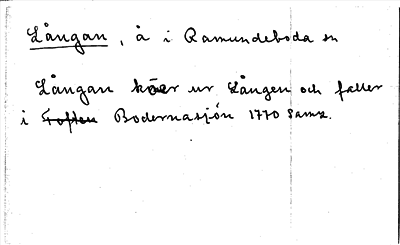 Långan, å i Ramundeboda sn
Långan kåer ur Lången och faller
i Toften Bodernasjön 1770 Samz.